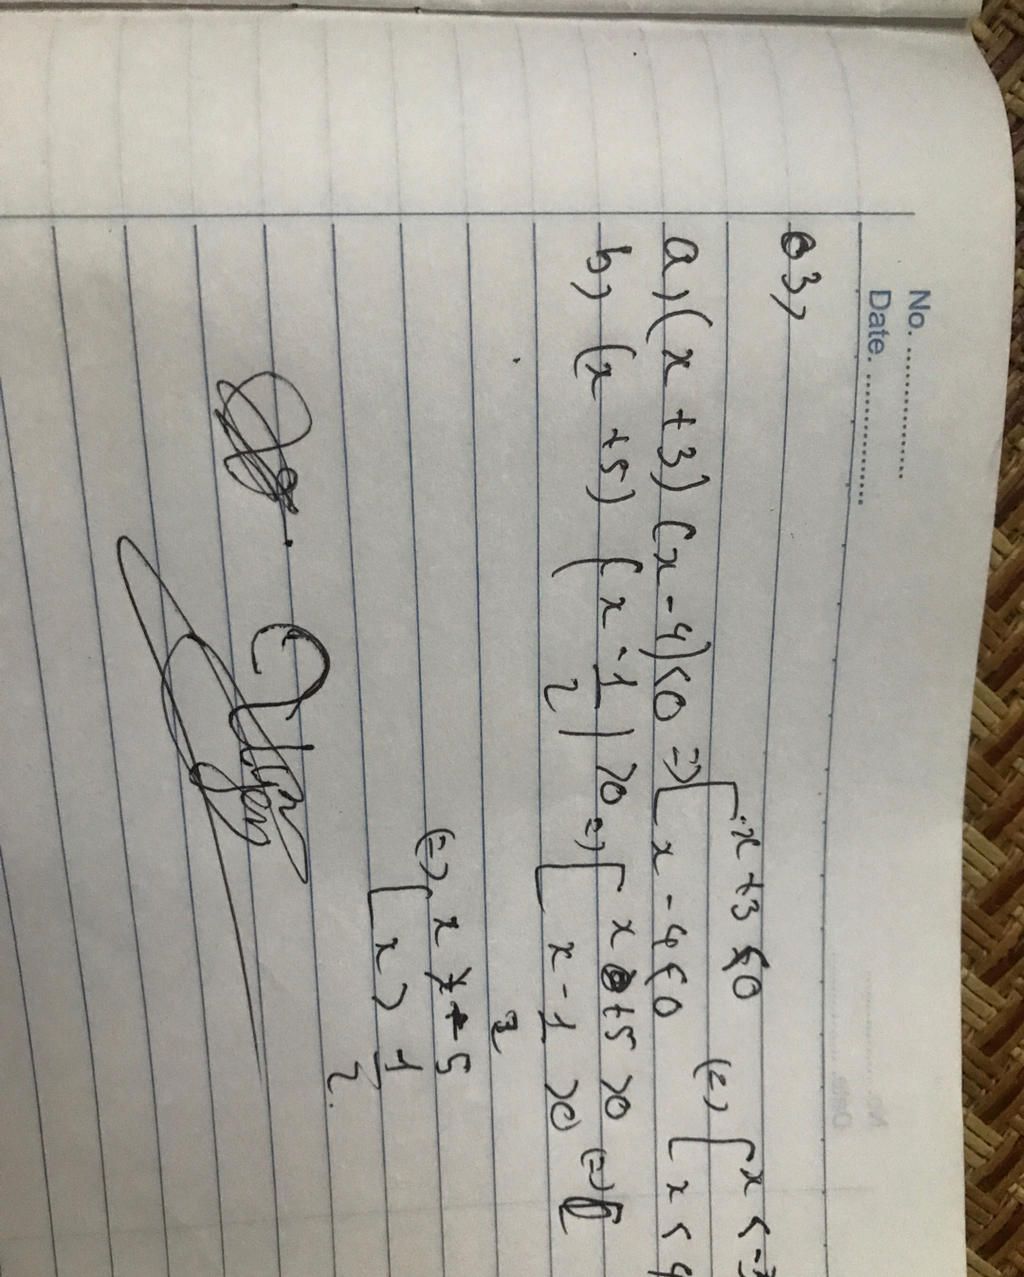 No. ..................
Date. ..................
3,
x + 3 < 0 (=) [ x < -3
a, (x + 3) (x - 4) < 0 => [ x - 4 < 0 [ x < 4
b, (x + 5) (x - 1/2) > 0 => [ x + 5 > 0
x - 1/2 > 0 (=) [
(=) x > -5
[ x > 1/2.